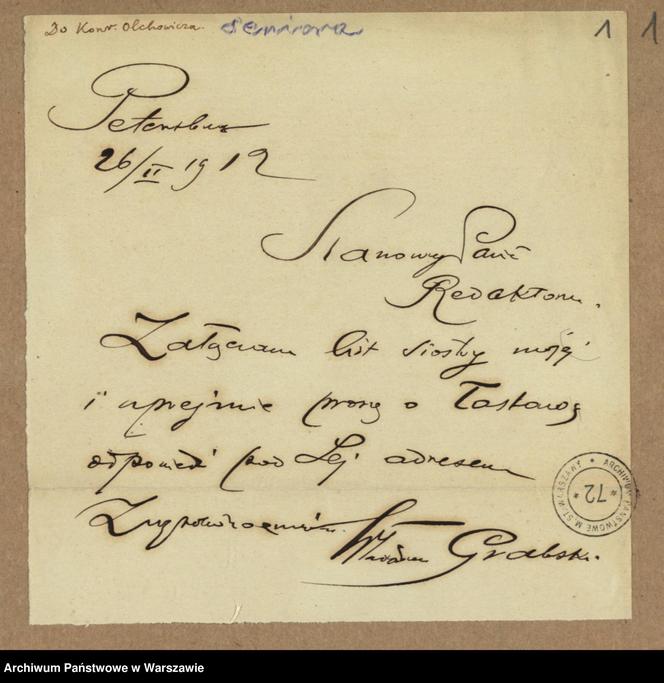 Do Konr. Olchowicza. seniora 1 1
Petersburg
26/II 1912
Szanowny Panie
Redaktorze.
Załączam list siostry mojej
i uprzejmie proszę o łaskawą
odpowiedź pod Jej adresem
Z wysokim Grabski.
ARCHIWUM PAŃSTWOWE M. ST. WARSZAWY
72
Archiwum Państwowe w Warszawie